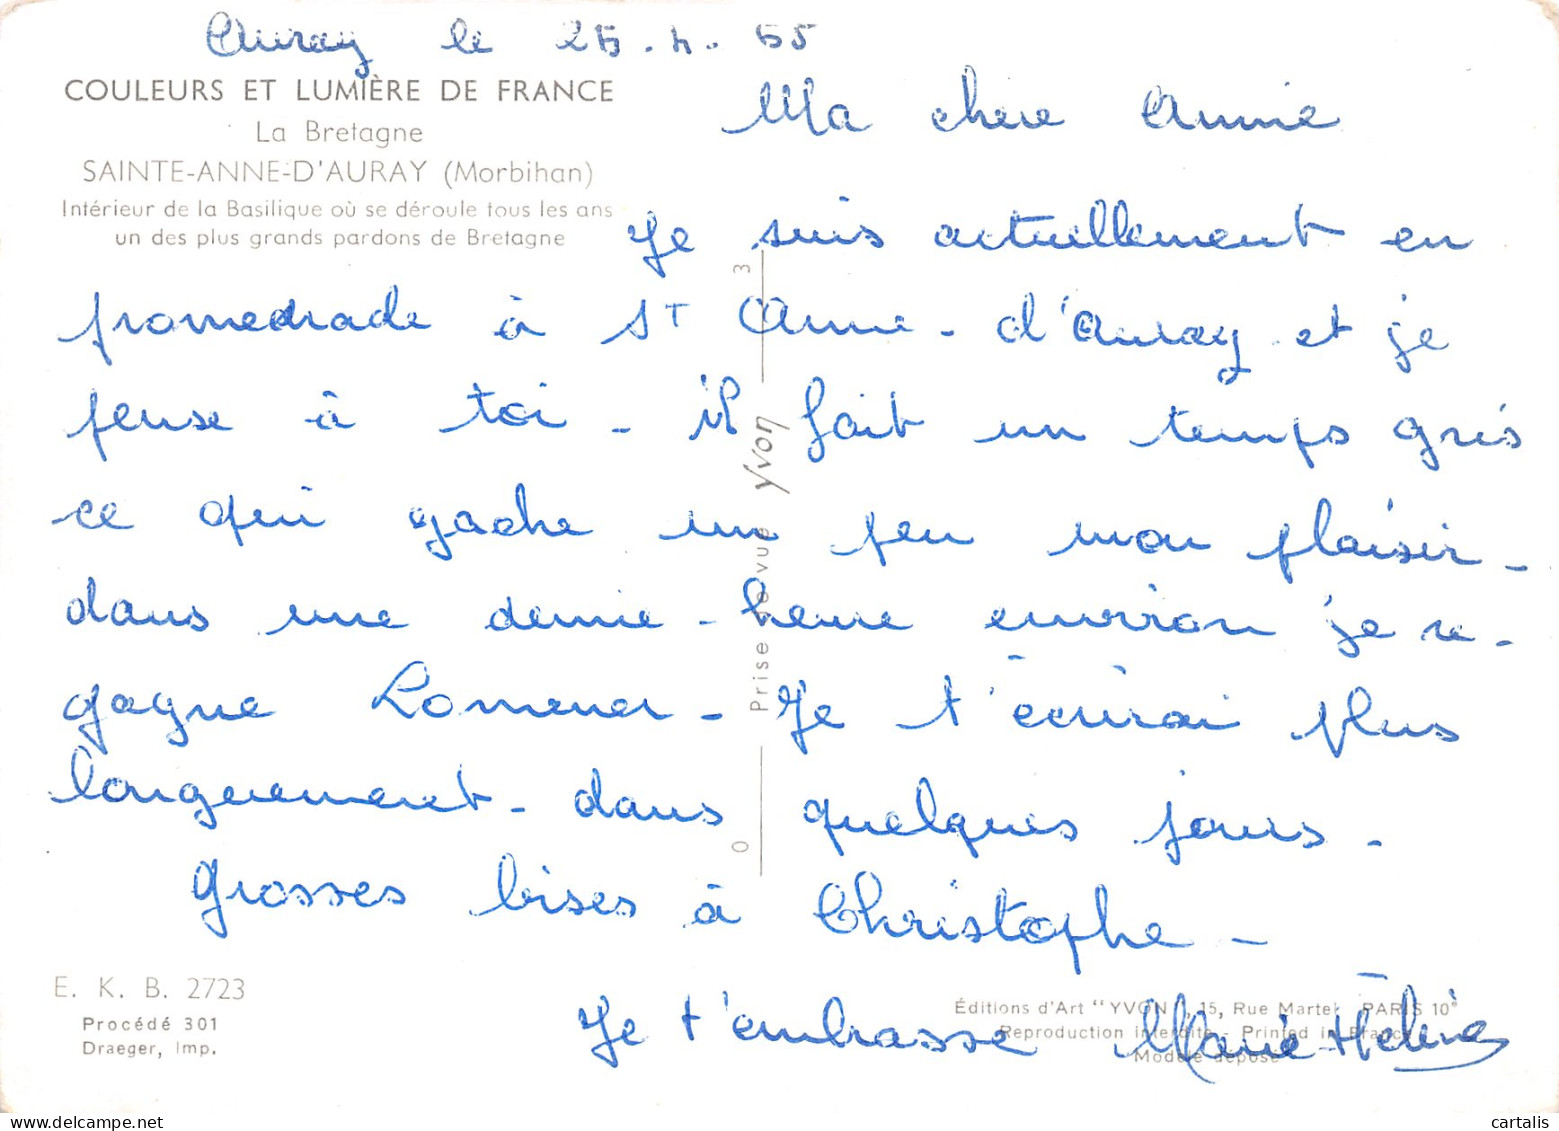 Auray le 25-4-65
COULEURS ET LUMIÈRE DE FRANCE
La Bretagne
SAINTE-ANNE-D'AURAY (Morbihan)
Intérieur de la Basilique où se déroule tous les ans
un des plus grands pardons de Bretagne
Ma chere Annie
Je suis actuellement en
promedrade à St Anne-d'Auray et je
pense à toi - il fait un temps gris
ce qui gache un peu mon plaisir -
dans une demie-heure environ je re-
gagne Lomener - Je t'écrirai plus
longuement - dans quelques jours -
Grosses bises à Christophe -
Je t'embrasse Marie-Hélène
3
Prise de vue Yvon
0
E. K. B. 2723
Procédé 301
Draeger, Imp.
Éditions d'Art "YVON", 15, Rue Martel, PARIS 10e
Reproduction interdite - Printed in France
Modèle déposé
cartalis